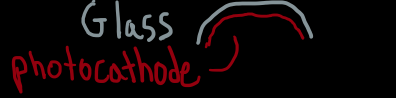 Glass
photocathode